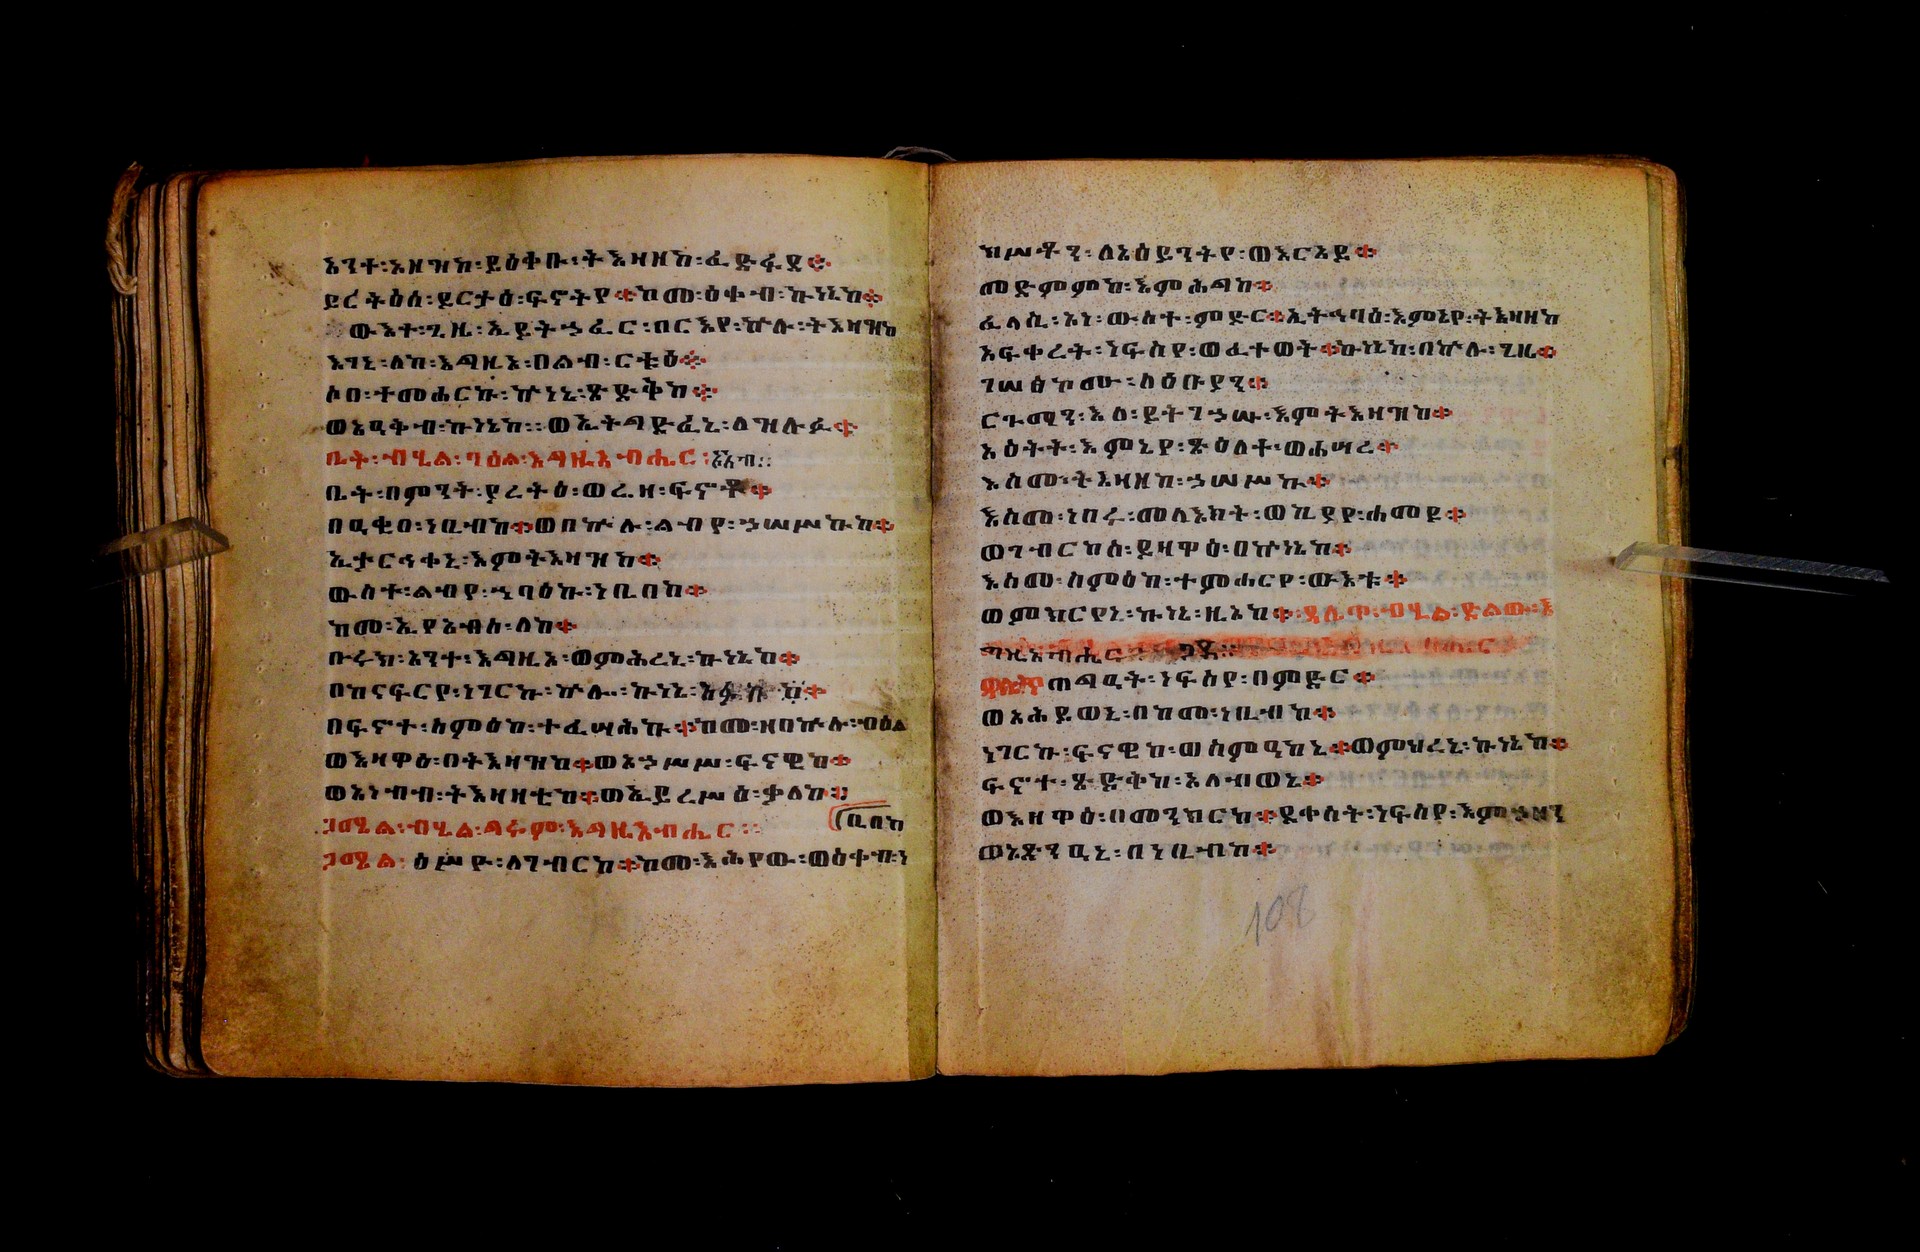 አንተ፡አዘዝከ፡ይዕቀቡ፡ትእዛዘከ፡ፈድፋደ።
ይረትዕሰ፡ይርታዕ፡ፍኖትየ።ከመ፡ዕቀብ፡ኵነኔከ።
ውእተ፡ጊዜ፡ኢይትኃፈር፡በርእየ፡ኵሉ፡ትእዛዝከ
እገኒ፡ለከ፡እግዚኦ፡በልብ፡ርቱዕ።
ሶበ፡ተመሐርኩ፡ኵነኔ፡ጽድቅከ።
ወአዓቅብ፡ኵነኔከ፡፡ወኢትግድፈኒ፡ለዝሉፉ።
ቤት፡ብሂል፡ባዕል፡እግዚአብሔር፡
ቤት፡በምንት፡ያረትዕ፡ወሬዛ፡ፍኖቶ።
በዓቂበ፡ነቢብከ።ወበኵሉ፡ልብየ፡ኃሠሥኩከ።
ኢታርኅቀኒ፡እምትእዛዝከ።
ውስተ፡ልብየ፡ኀባዕኩ፡ነቢበከ።
ከመ፡ኢየአብስ፡ለከ።
ቡሩክ፡አንተ፡እግዚኦ፡ወምሕረኒ፡ኵነኔከ።
በከናፍርየ፡ነገርኩ፡ኵሎ፡ኵነኔ፡አፉከ።
በፍኖተ፡ስምዕከ፡ተፈሣሕኩ።ከመ፡ዘበኵሉ፡ብዕል
ወእዛዋዕ፡በትእዛዝከ።ወአኃሥሥ፡ፍናዊከ።
ወአነብብ፡ትእዛዘቲከ።ወኢይረሥዕ፡ቃለከ።
ጋሜል፡ብሂል፡ግሩም፡እግዚአብሔር፡፡
(ቢበከ
ጋሜል፡ዕሥዮ፡ለገብርከ።ከመ፡እሕየው፡ወዕቀብ፡ነ
ክሥቶን፡ለአዕይንትየ፡ወእርአይ።
መድምምከ፡እምሕግከ።
ፈላሲ፡አነ፡ውስተ፡ምድር።ኢትኅባዕ፡እምኔየ፡ትእዛዘከ
አፍቀረት፡ነፍስየ፡ወፈተወት።ኵነኔከ፡በኵሉ፡ጊዜ።
ገሠፅኮሙ፡ለዕቡያን።
ርጉማን፡እለ፡ይትገኃሡ፡እምትእዛዝከ።
አዕትት፡እምኔየ፡ጽዕለተ፡ወሐሣረ።
እስመ፡ትእዛዘከ፡ኃሠሥኩ።
እስመ፡ነበሩ፡መላእክት፡ወኪያየ፡ሐመዩ።
ወገብርከሰ፡ይዛዋዕ፡በኵነኔከ።
እስመ፡ስምዕከ፡ተምሐርየ፡ውእቱ።
ወምክርየኒ፡ኵነኔ፡ዚአከ።ዳሌጥ፡ብሂል፡ድልው፡እ
ጠግዓት፡ነፍስየ፡በምድር።
ወአሕይወኒ፡በከመ፡ነቢብከ።
ነገርኩ፡ፍናዊከ፡ወሰምዓከኒ።ወምህረኒ፡ኵነኔከ።
ፍኖተ፡ጽድቅከ፡አለብወኒ።
ወእዛዋዕ፡በመንክርከ።ደቀሰት፡ነፍስየ፡እምኃዘን
ወአጽንዓኒ፡በነቢብከ።
108